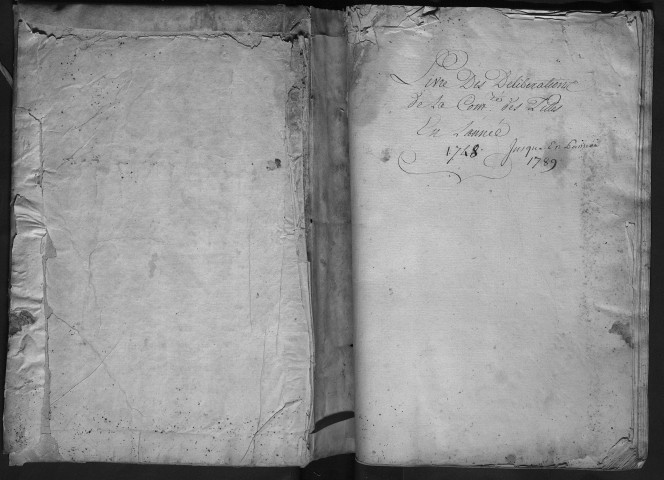 Livre Des Deliberations
de La Com.té des Pilles
En L'année
1748 Jusqu'en L'année
1789